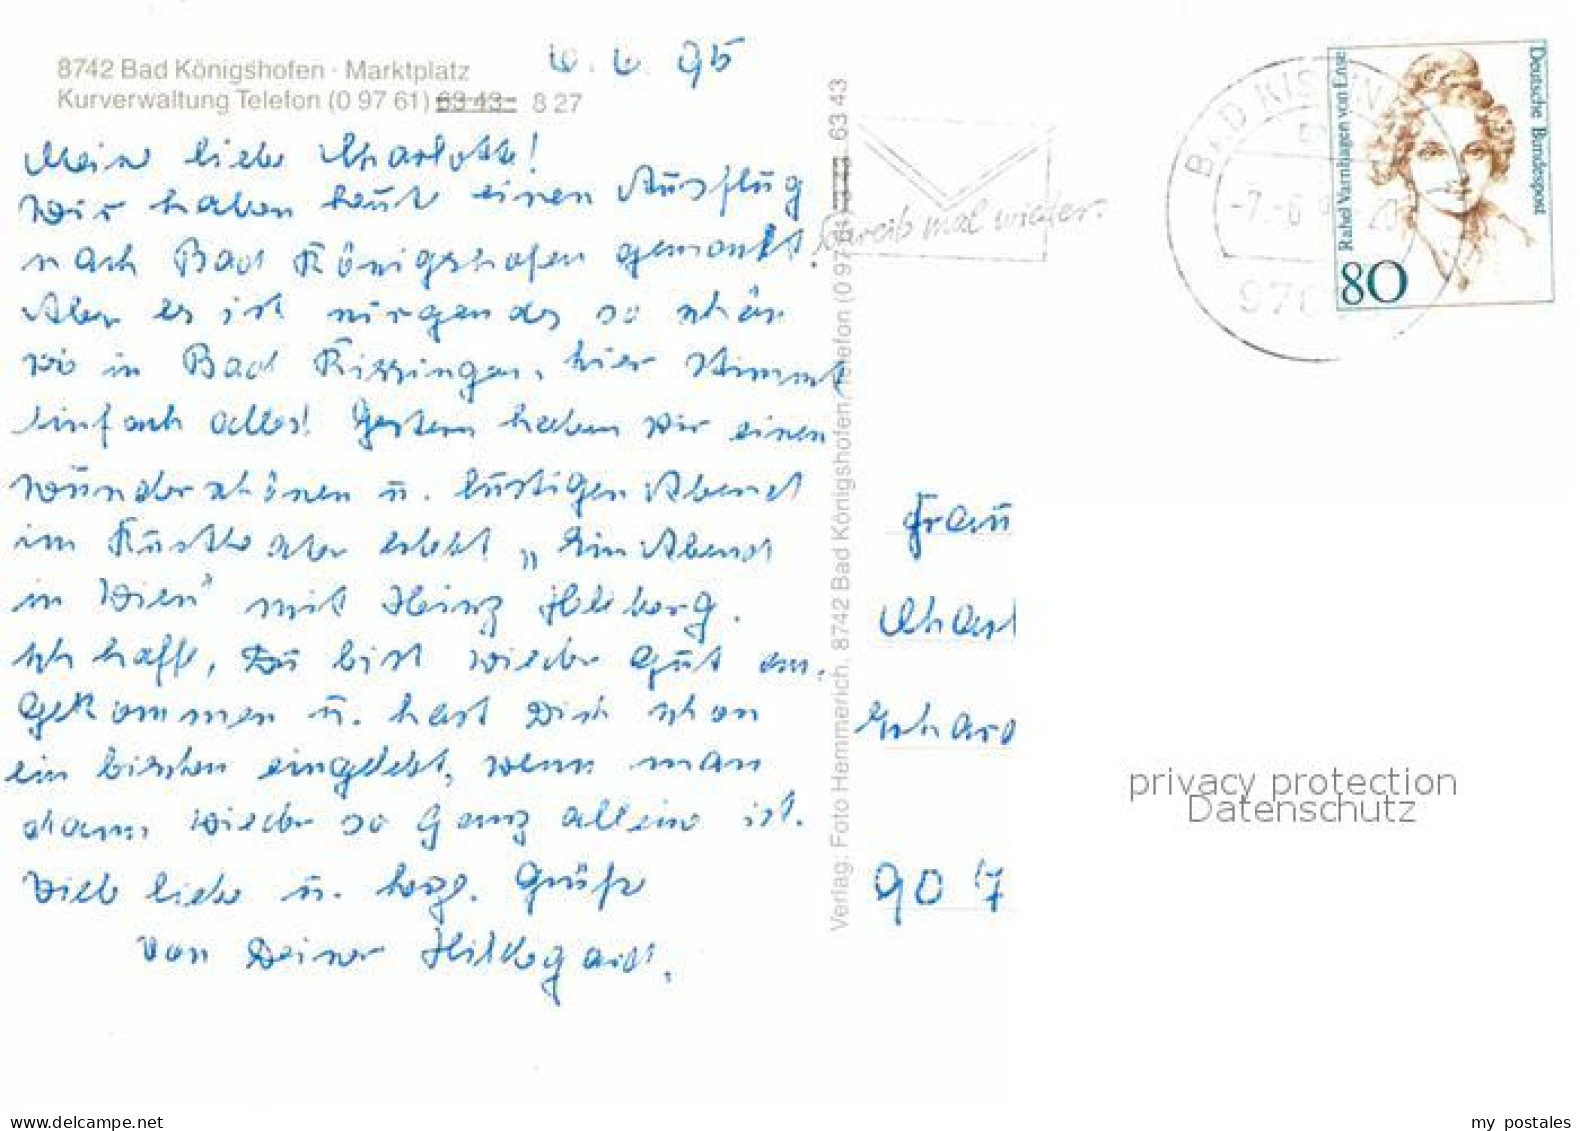 8742 Bad Königshofen · Marktplatz
Kurverwaltung Telefon (0 97 61) 63 43 8 27
6. 6. 95
Meine liebe Charlotte!
Wir haben heute einen Ausflug
nach Bad Königshofen gemacht.
Aber es ist nirgendes so schön
wie in Bad Kissingen, hier stimmt
einfach alles! Gestern haben wir einen
wunderschönen u. lustigen Abend
im Kurtheater erlebt „Ein Abend
in Wien" mit Heinz
Ich hoffe, Du bist wieder gut an-
gekommen u. hast Dich schon
ein bischen eingelebt, wenn man
dann wieder so ganz alleine ist.
Viele liebe u. herzl. Grüße
von Deiner Hildegard.
Verlag: Foto Hemmerich, 8742 Bad Königshofen, Telefon (0 97 61) 63 43
Schreib mal wieder.
BAD KISSINGEN
-7.-6.
20
970
Deutsche Bundespost
Rahel Varnhagen von Ense
80
Frau
Charl
Erhard
90 7
privacy protection
Datenschutz
www.delcampe.net
my_postales